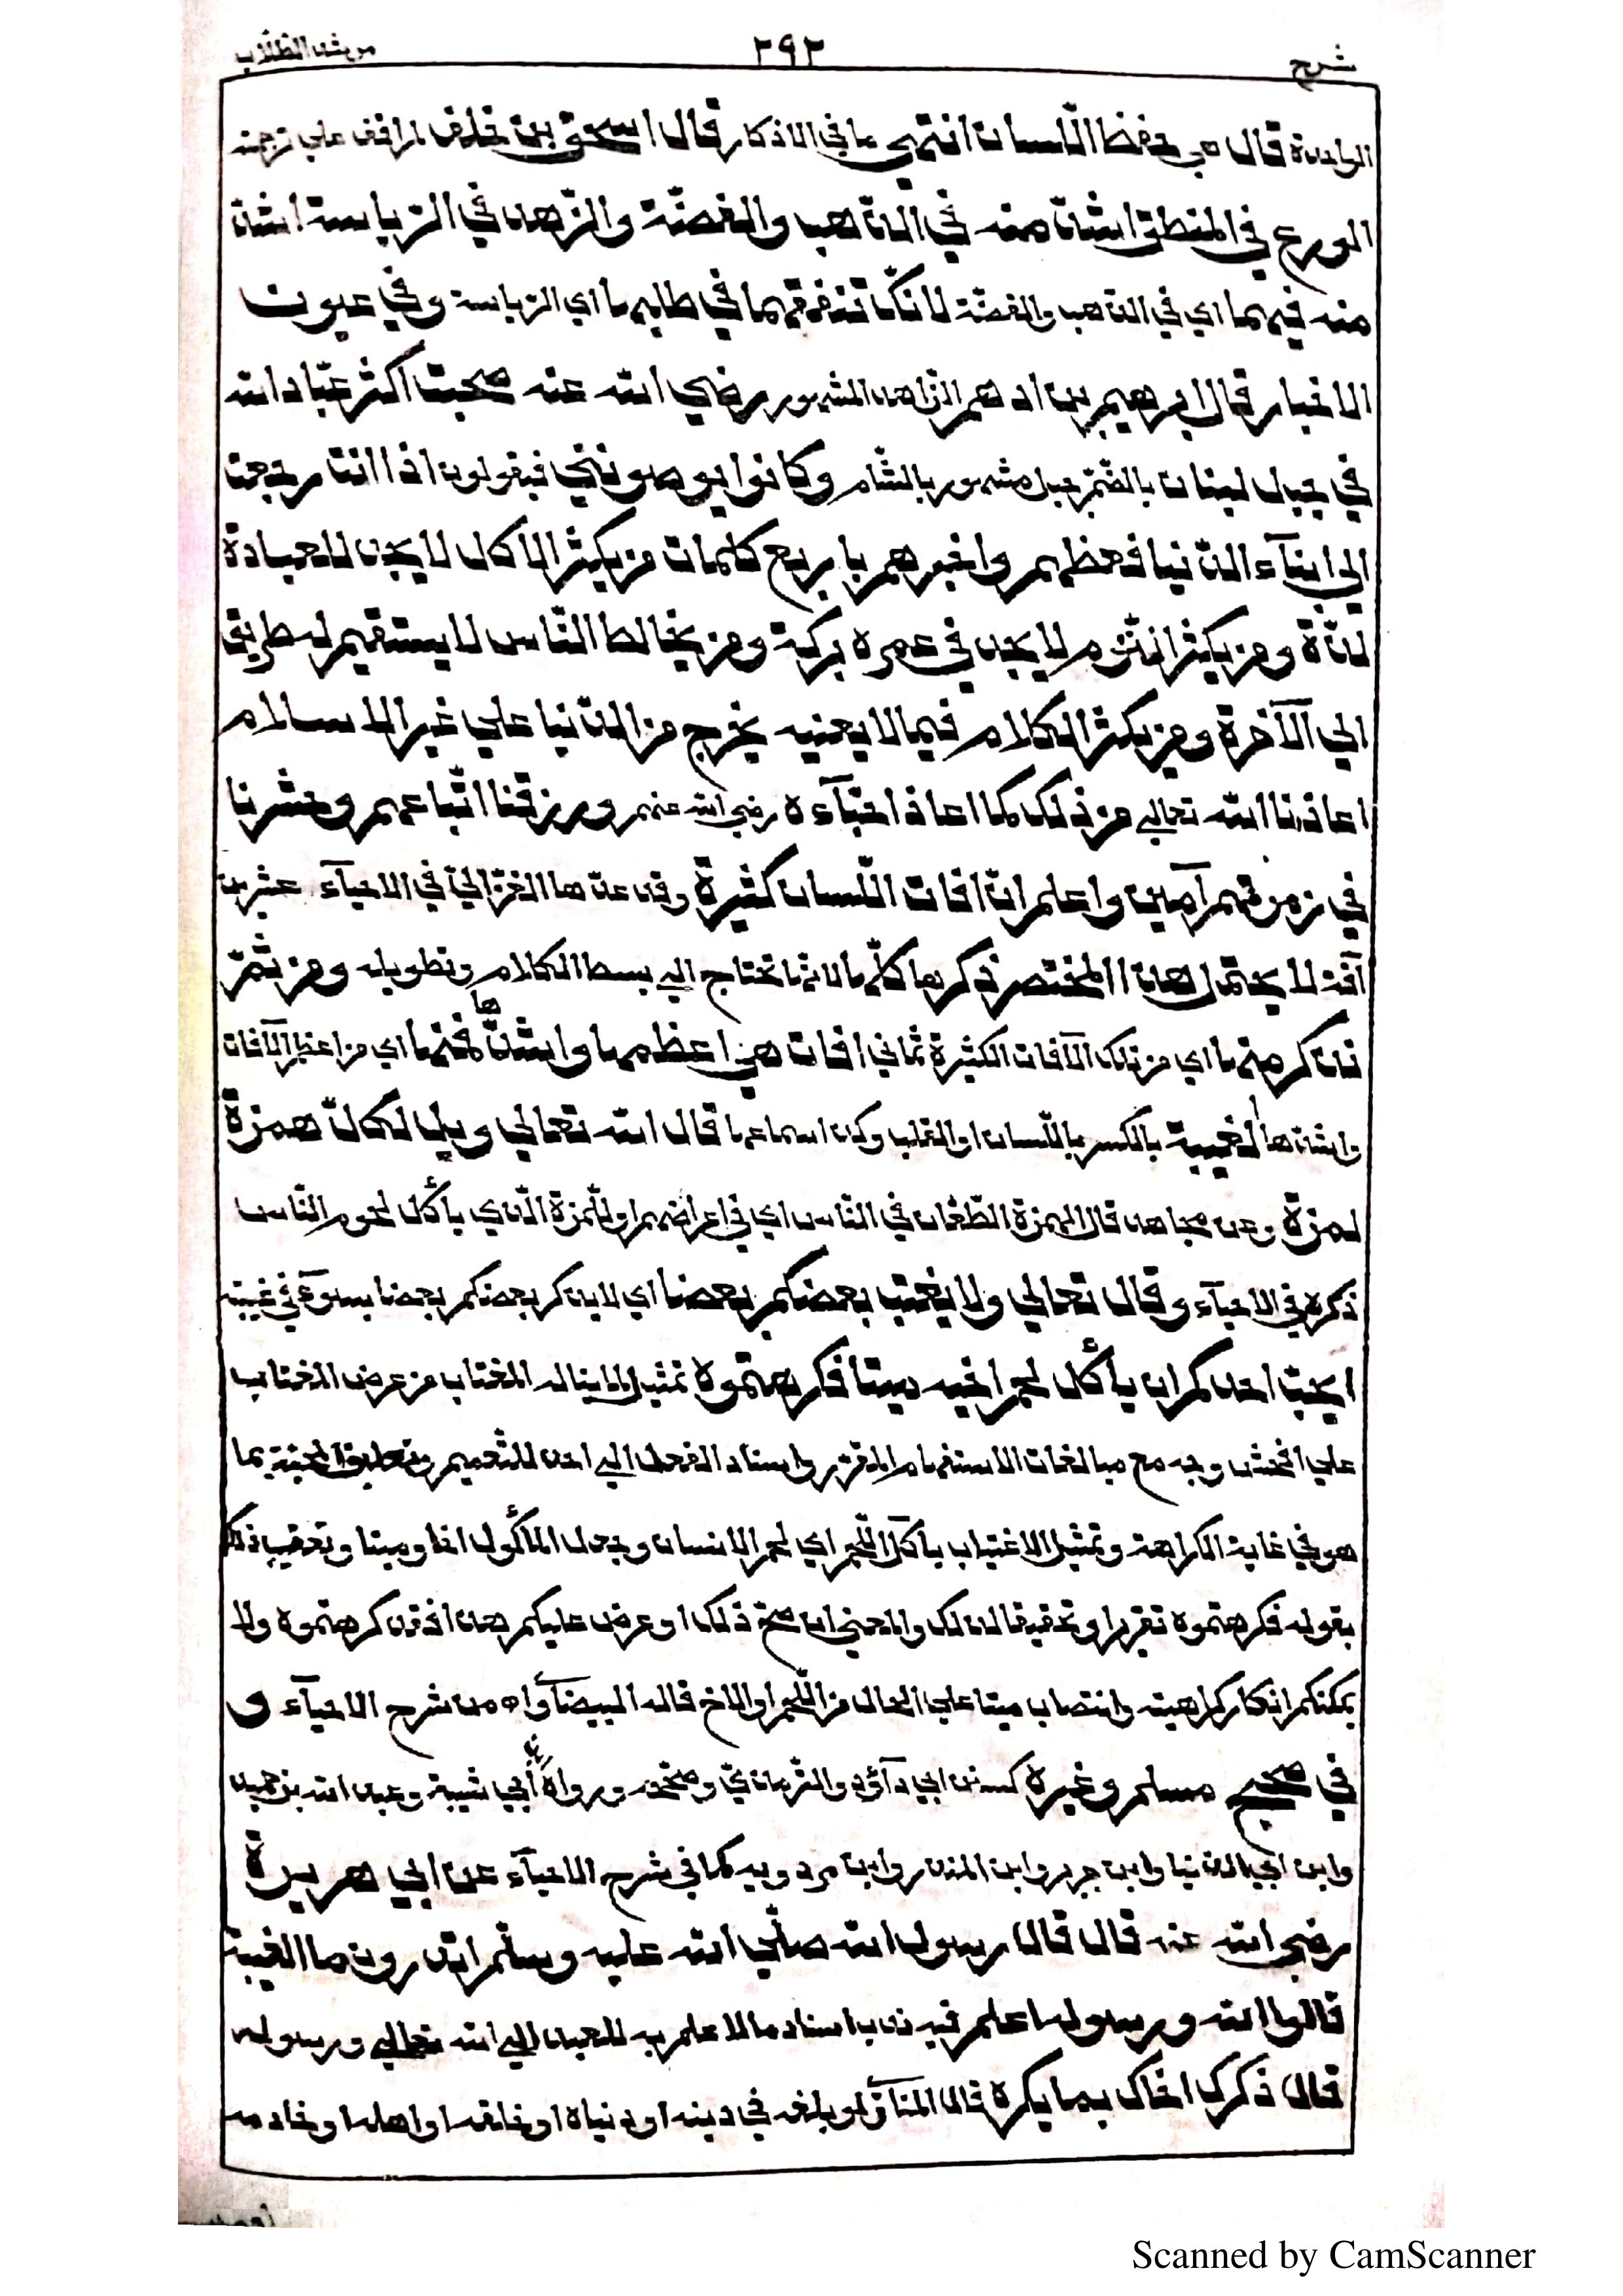 شرح ٢٩٢ مرشد الطلّاب
الواحدة قال في حفظ اللّسان انتهى ما في الاذكار قال اسحق بن خلف
الورع في المنطق اشدّ منه في الذّهب والفضّة والزّهد في الرّياسة اشدّ
منه فيهما اي في الذّهب والفضّة لانّك تنفقهما في طلبها اي الرّياسة وفي عيون
الاخبار قال ابرهيم بن ادهم الزّاهد المشهور رضي الله عنه صحبت اكثر عبّاد الله
في جبل لبنان بالضّمّ جبل مشهور بالشّام وكانوا يوصونني فيقولون اذا انت رجعت
الى ابنآء الدّنيا فعظهم واخبرهم باربع كلمات من يكثر الاكل لا يجد للعبادة
لذّة ومن يكثر النّوم لا يجد في عمره بركة ومن يخالط النّاس لا يستقيم له طريق
الي الآخرة ومن يكثر الكلام فيما لا يعنيه يخرج من الدّنيا علي غير الاسلام
اعاذنا الله تعالي من ذلك كما اعاذ احبّآءه رضي الله عنهم ورزقنا اتّباعهم وحشرنا
في زمرتهم آمين واعلم انّ افات اللّسان كثيرة وقد عدّها الغزالي في الاحيآء عشرين
آفة لا يحتمل هذا المختصر ذكرها كلّها لانّها تحتاج الي بسط الكلام وتطويله ومن ثمّ
نذكر منها اي من تلك الآفات الكثيرة ثماني افات هي اعظمها واشدّها فمنها اي من اعظم الآفات
واشدّها الغيبة بالكسر باللّسان او القلب وكذا سماعها قال الله تعالي ويل لكلّ همزة
لمزة وعن مجاهد قال الهمزة الطّعّان في النّاس اي في اعراضهم واللّمزة الّذي يأكل لحوم النّاس
ذكره في الاحيآء وقال تعالي ولا يغتب بعضكم بعضا اي لا يذكر بعضكم بعضا بسوء في غيبته
ايحبّ احدكم ان يأكل لحم اخيه ميتا فكرهتموه تمثيل لما يناله المغتاب من عرض المغتاب
علي افحش وجه مع مبالغات الاستفهام المقرّر واسناد الفعل الي احد للتّعميم وتعليق المحبّة بما
هو في غاية الكراهة وتمثيل الاغتياب باكل اللّحم اي لحم الانسان وجعل المأكول اخا وميتا وتعقيب ذلك
بقوله فكرهتموه تقريرا وتحقيقا لذلك والمعني ان صحّ ذلك او عرض عليكم هذا فقد كرهتموه ولا
يمكنكم انكار كراهيته وانتصاب ميتا علي الحال من اللّحم او الاخ قاله البيضآوي اه من شرح الاحيآء و
في صحيح مسلم وغيره كسنن ابي داود والترمذي وصحّحه ورواه ابن أبي شيبة وعبد الله بن حميد
وابن ابي الدّنيا وابن جرير وابن المنذر وابن مردويه كما في شرح الاحيآء عن ابي هريرة
رضي الله عنه قال قال رسول الله صلّي الله عليه وسلّم اتدرون ما الغيبة
قالوا الله ورسوله اعلم فيه ندب اسناد ما لا علم به للعبد الي الله تعالي ورسوله
قال ذكرك اخاك بما يكره قال المناوي لو بلغه في دينه او دنياه او خلقه او اهله او خادمه
Scanned by CamScanner